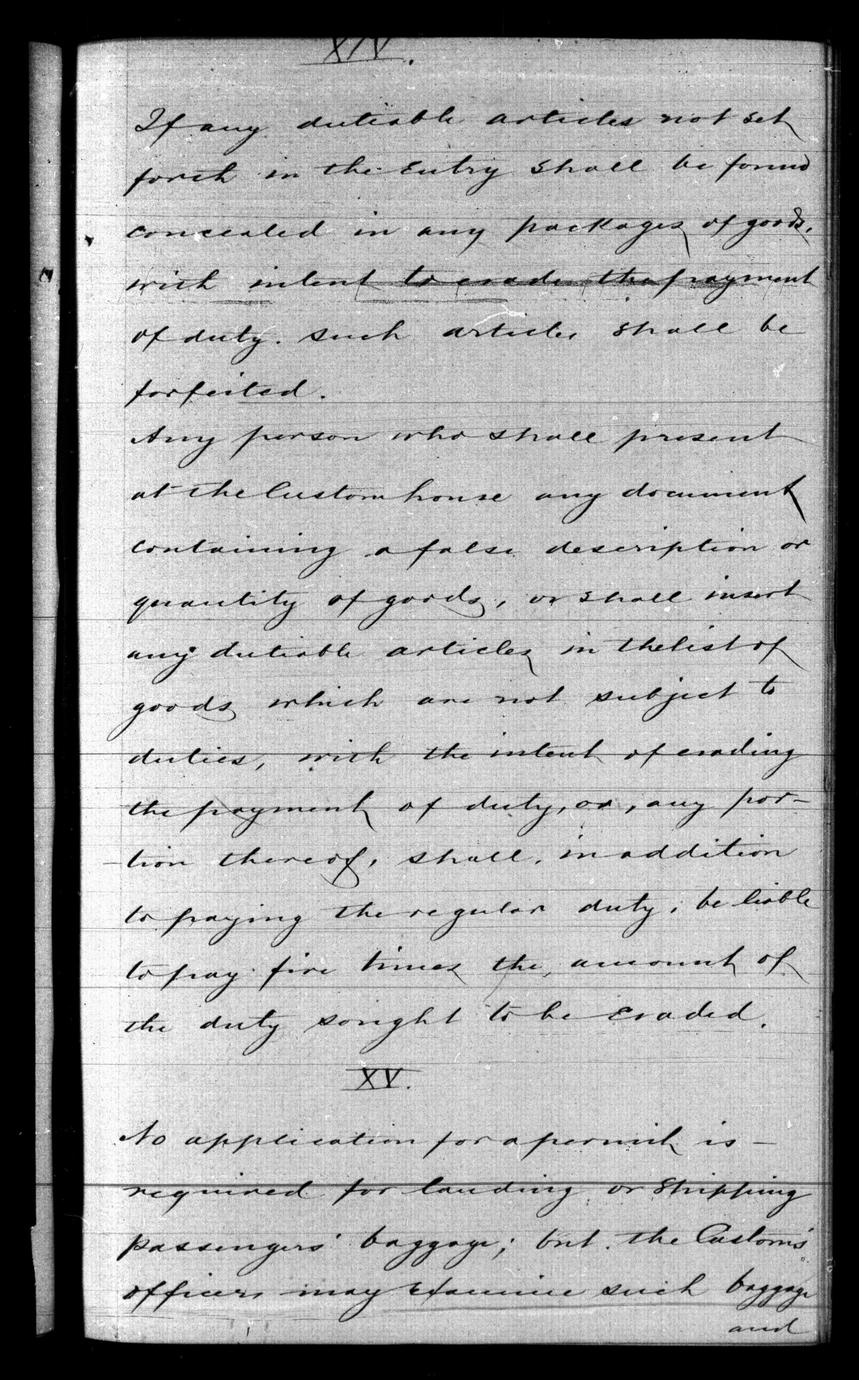 XIV.
If any dutiable articles not set
forth in the Entry shall be found
concealed in any packages of goods,
with intent to evade the payment
of duty. such articles shall be
forfeited.
Any person who shall present
at the Custom house any document
containing a false description or
quantity of goods, or shall insert
any dutiable articles in the list of
goods which are not subject to
duties, with the intent of evading
the payment of duty, or, any por-
tion thereof, shall, in addition
to paying the regular duty, be liable
to pay five times the amount of
the duty sought to be Evaded.
XV.
No application for a permit is -
required for landing or shipping
passengers' baggage; but the Customs'
officers may Examine such baggage
and